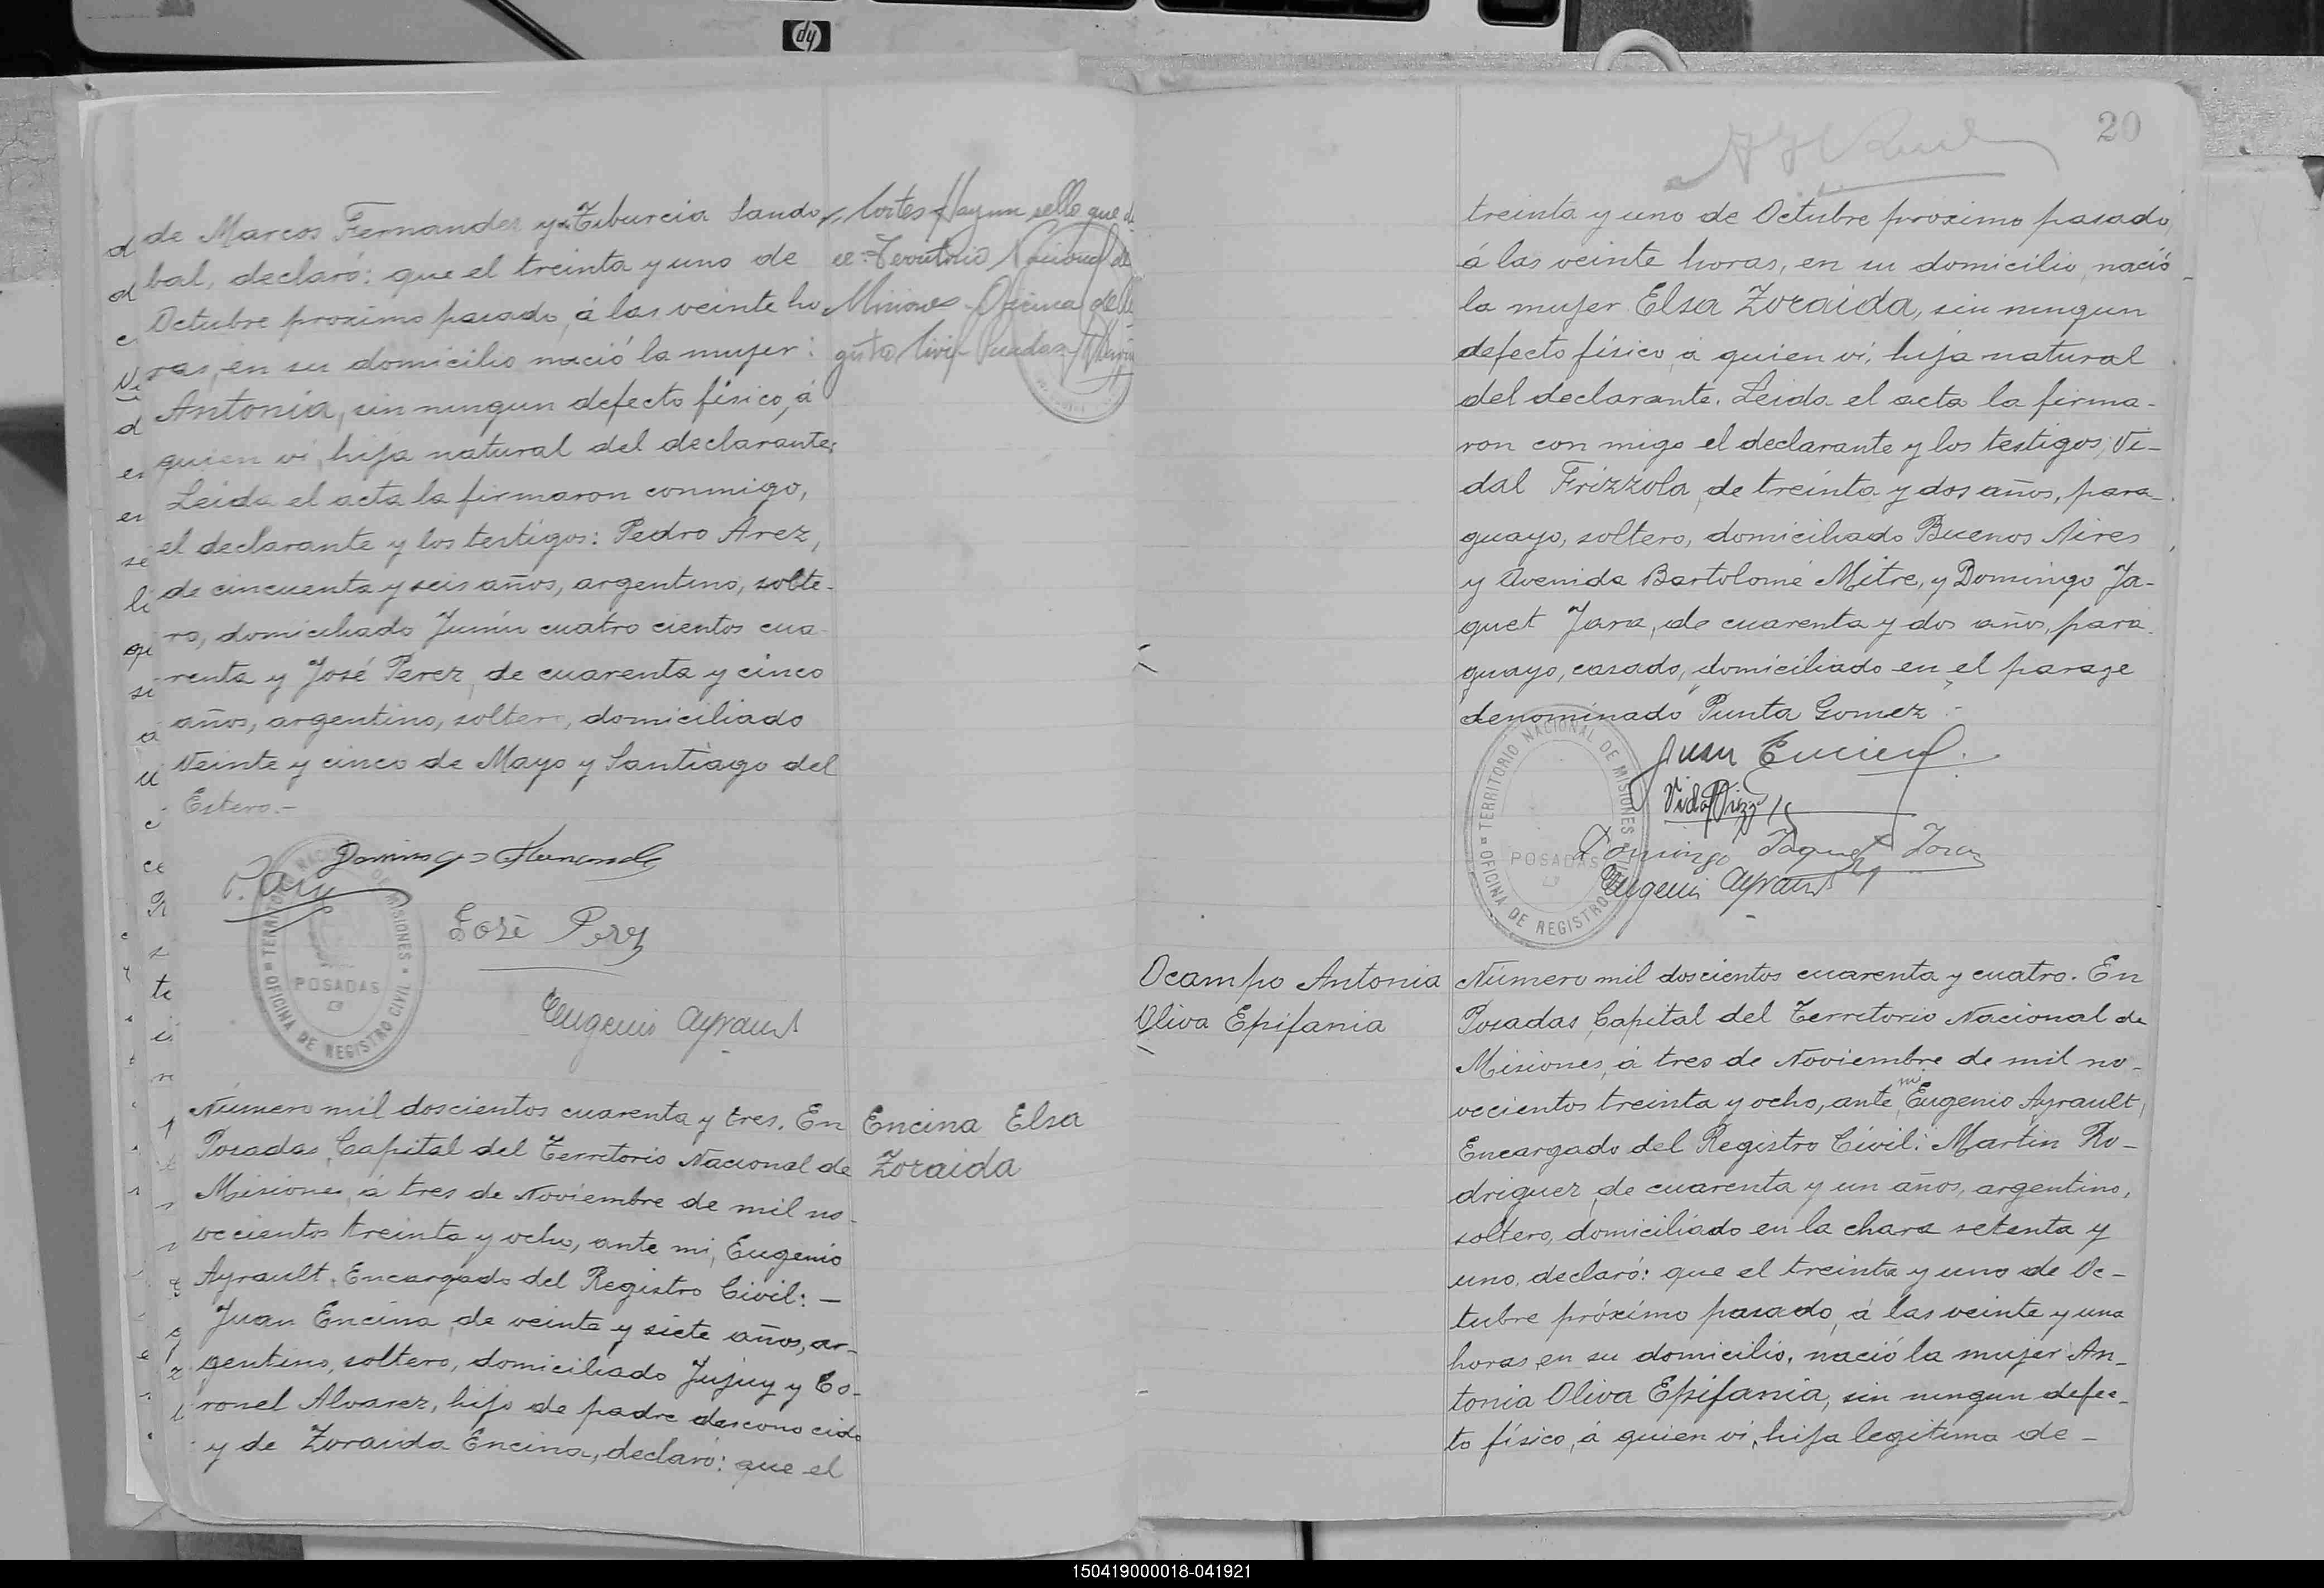 de Marcos Fernandez y Tiburcia Sando-
bal, declaró: que el treinta y uno de
Octubre proximo pasado, á las veinte ho
ras, en su domicilio nació la mujer:
Antonia, sin ningun defecto fisico, á
quien vi, hija natural del declarante:
Leida el acta la firmaron conmigo,
el declarante y los testigos: Pedro Arez,
de cincuenta y seis años, argentino, solte-
ro, domiciliado Junín cuatro cientos cua
renta y José Perez, de cuarenta y cinco
años, argentino, soltero, domiciliado
Veinte y cinco de Mayo y Santiago del
Estero.-
Domingo Fernandez
P. Arez
José Perez
Eugenio Ayrault
TERRITORIO NACIONAL DE MISIONES
POSADAS
OFICINA DE REGISTRO CIVIL
Cortes Hay un sello que di
ce: Territorio Nacional de
Misiones Oficina de Re
gistro Civil Posadas
Número mil doscientos cuarenta y tres. En
Posadas, Capital del Territorio Nacional de
Misiones, á tres de Noviembre de mil no-
vecientos treinta y ocho, ante mi, Eugenio
Ayrault, Encargado del Registro Civil: -
Juan Encina, de veinte y siete años, ar-
gentino, soltero, domiciliado Jujuy y Co-
ronel Alvarez, hijo de padre desconocido
y de Zoraida Encina, declaró: que el
Encina Elsa
Zoraida
20
treinta y uno de Octubre proximo pasado,
á las veinte horas, en su domicilio, nació
la mujer Elsa Zoraida, sin ningun
defecto físico, á quien vi, hija natural
del declarante. Leida el acta la firma-
ron con migo el declarante y los testigos; Vi-
dal Frizzola, de treinta y dos años, para-
guayo, soltero, domiciliado Buenos Aires
y Avenida Bartolomé Mitre, y Domingo Ja-
quet Jara, de cuarenta y dos años, para
guayo, casado, domiciliado en el parage
denominado "Punta Gomez".-
Juan Encina
Vidal Frizzola
Domingo Jaquet Jara
Eugenio Ayrault
TERRITORIO NACIONAL DE MISIONES
POSADAS
OFICINA DE REGISTRO
Ocampo Antonia
Oliva Epifania
Número mil doscientos cuarenta y cuatro. En
Posadas, Capital del Territorio Nacional de
Misiones, á tres de Noviembre de mil no-
vecientos treinta y ocho, ante mi, Eugenio Ayrault,
Encargado del Registro Civil: Martín Ro-
driguez, de cuarenta y un años, argentino,
soltero, domiciliado en la chara setenta y
uno, declaró: que el treinta y uno de Oc-
tubre próximo pasado, á las veinte y una
horas, en su domicilio, nació la mujer An-
tonia Oliva Epifania, sin ningun defec-
to físico, á quien vi, hija legitima de -
150419000018-041921